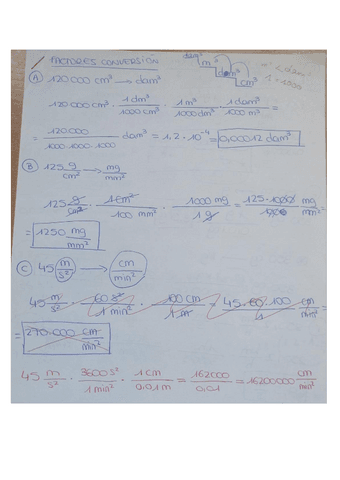 FACTORES CONVERSIÓN
dam³
m³
dm³
cm³
A 120000 cm³ → dam³
120000 cm³ · 1 dm³ / 1000 cm³ · 1 m³ / 1000 dm³ · 1 dam³ / 1000 m³ =
= 120.000 / 1000·1000·1000 dam³ = 1,2·10⁻⁴ = 0,00012 dam³
B 125 g/cm² → mg/mm²
125 g/cm² · 1 cm² / 100 mm² · 1000 mg / 1 g = 125·1000 / 100 mg/mm² =
= 1250 mg/mm²
C 45 m/s² → cm/min²
45 m/s² · 60 s² / 1 min² · 100 cm / 1 m = 45·60·100 / 1 cm/min² =
= 270.000 cm/min²
45 m/s² · 3600 s² / 1 min² · 1 cm / 0,01 m = 162000 / 0,01 = 16200000 cm/min²